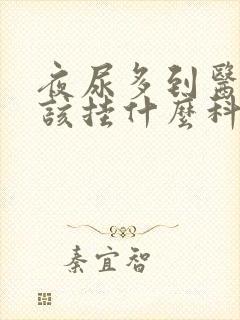 夜尿多到醫
該挂什麼科
秦宜智